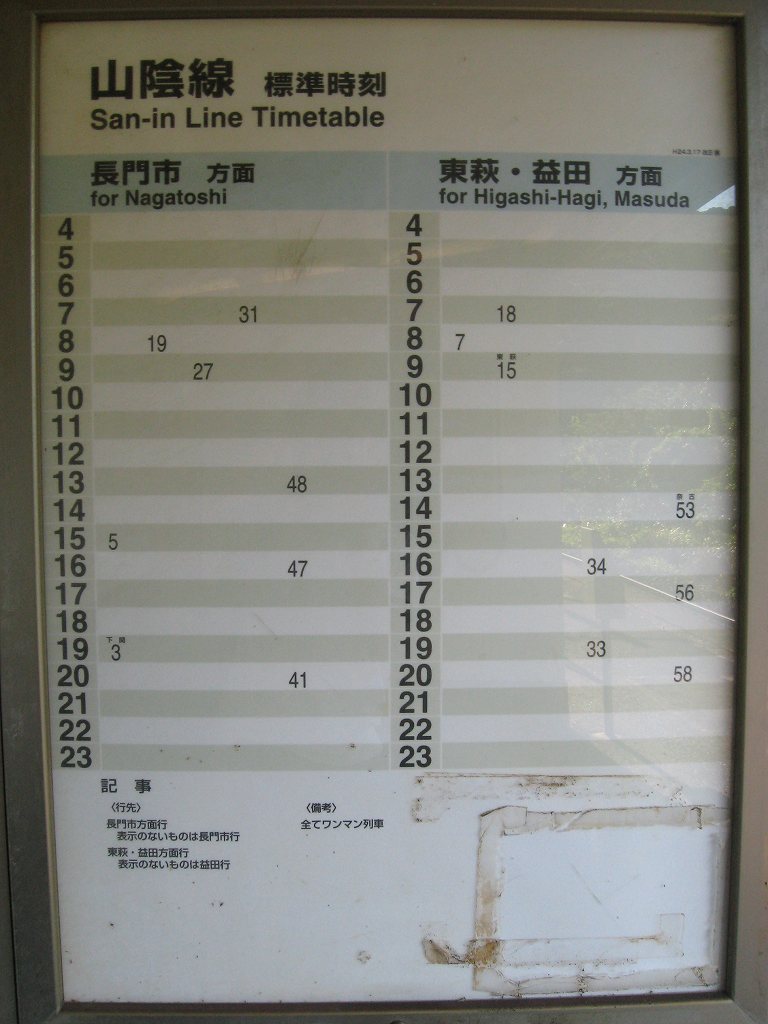 山陰線 標準時刻
San-in Line Timetable
H24.3.17改正
長門市 方面 東萩・益田 方面
for Nagatoshi for Higashi-Hagi, Masuda
4 4
5 5
6 6
7 31 7 18
8 19 8 7
東萩
9 27 9 15
10 10
11 11
12 12
13 48 13
奈古
14 14 53
15 5 15
16 47 16 34
17 17 56
18 18
下関
19 3 19 33
20 41 20 58
21 21
22 22
23 23
記 事
〈行先〉 〈備考〉
長門市方面行 全てワンマン列車
表示のないものは長門市行
東萩・益田方面行
表示のないものは益田行